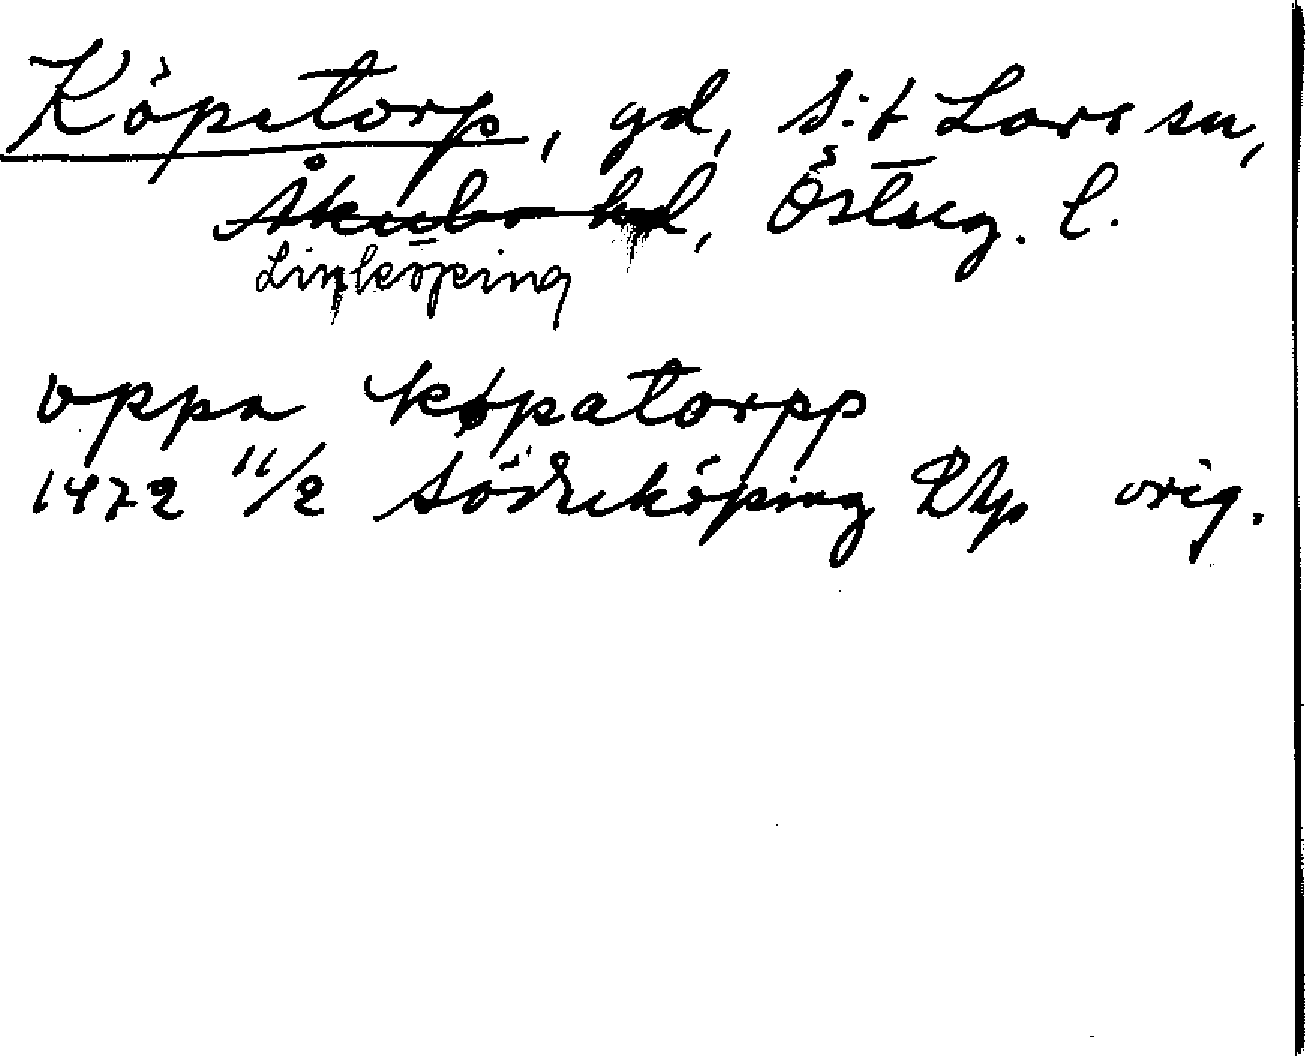 Köpetorp, gd, S:t Lars sn,
Åkerbo hd, Östерg. l.
Linköping
oppa køpatorpp
1472 11/2 Söderköping Php orig.